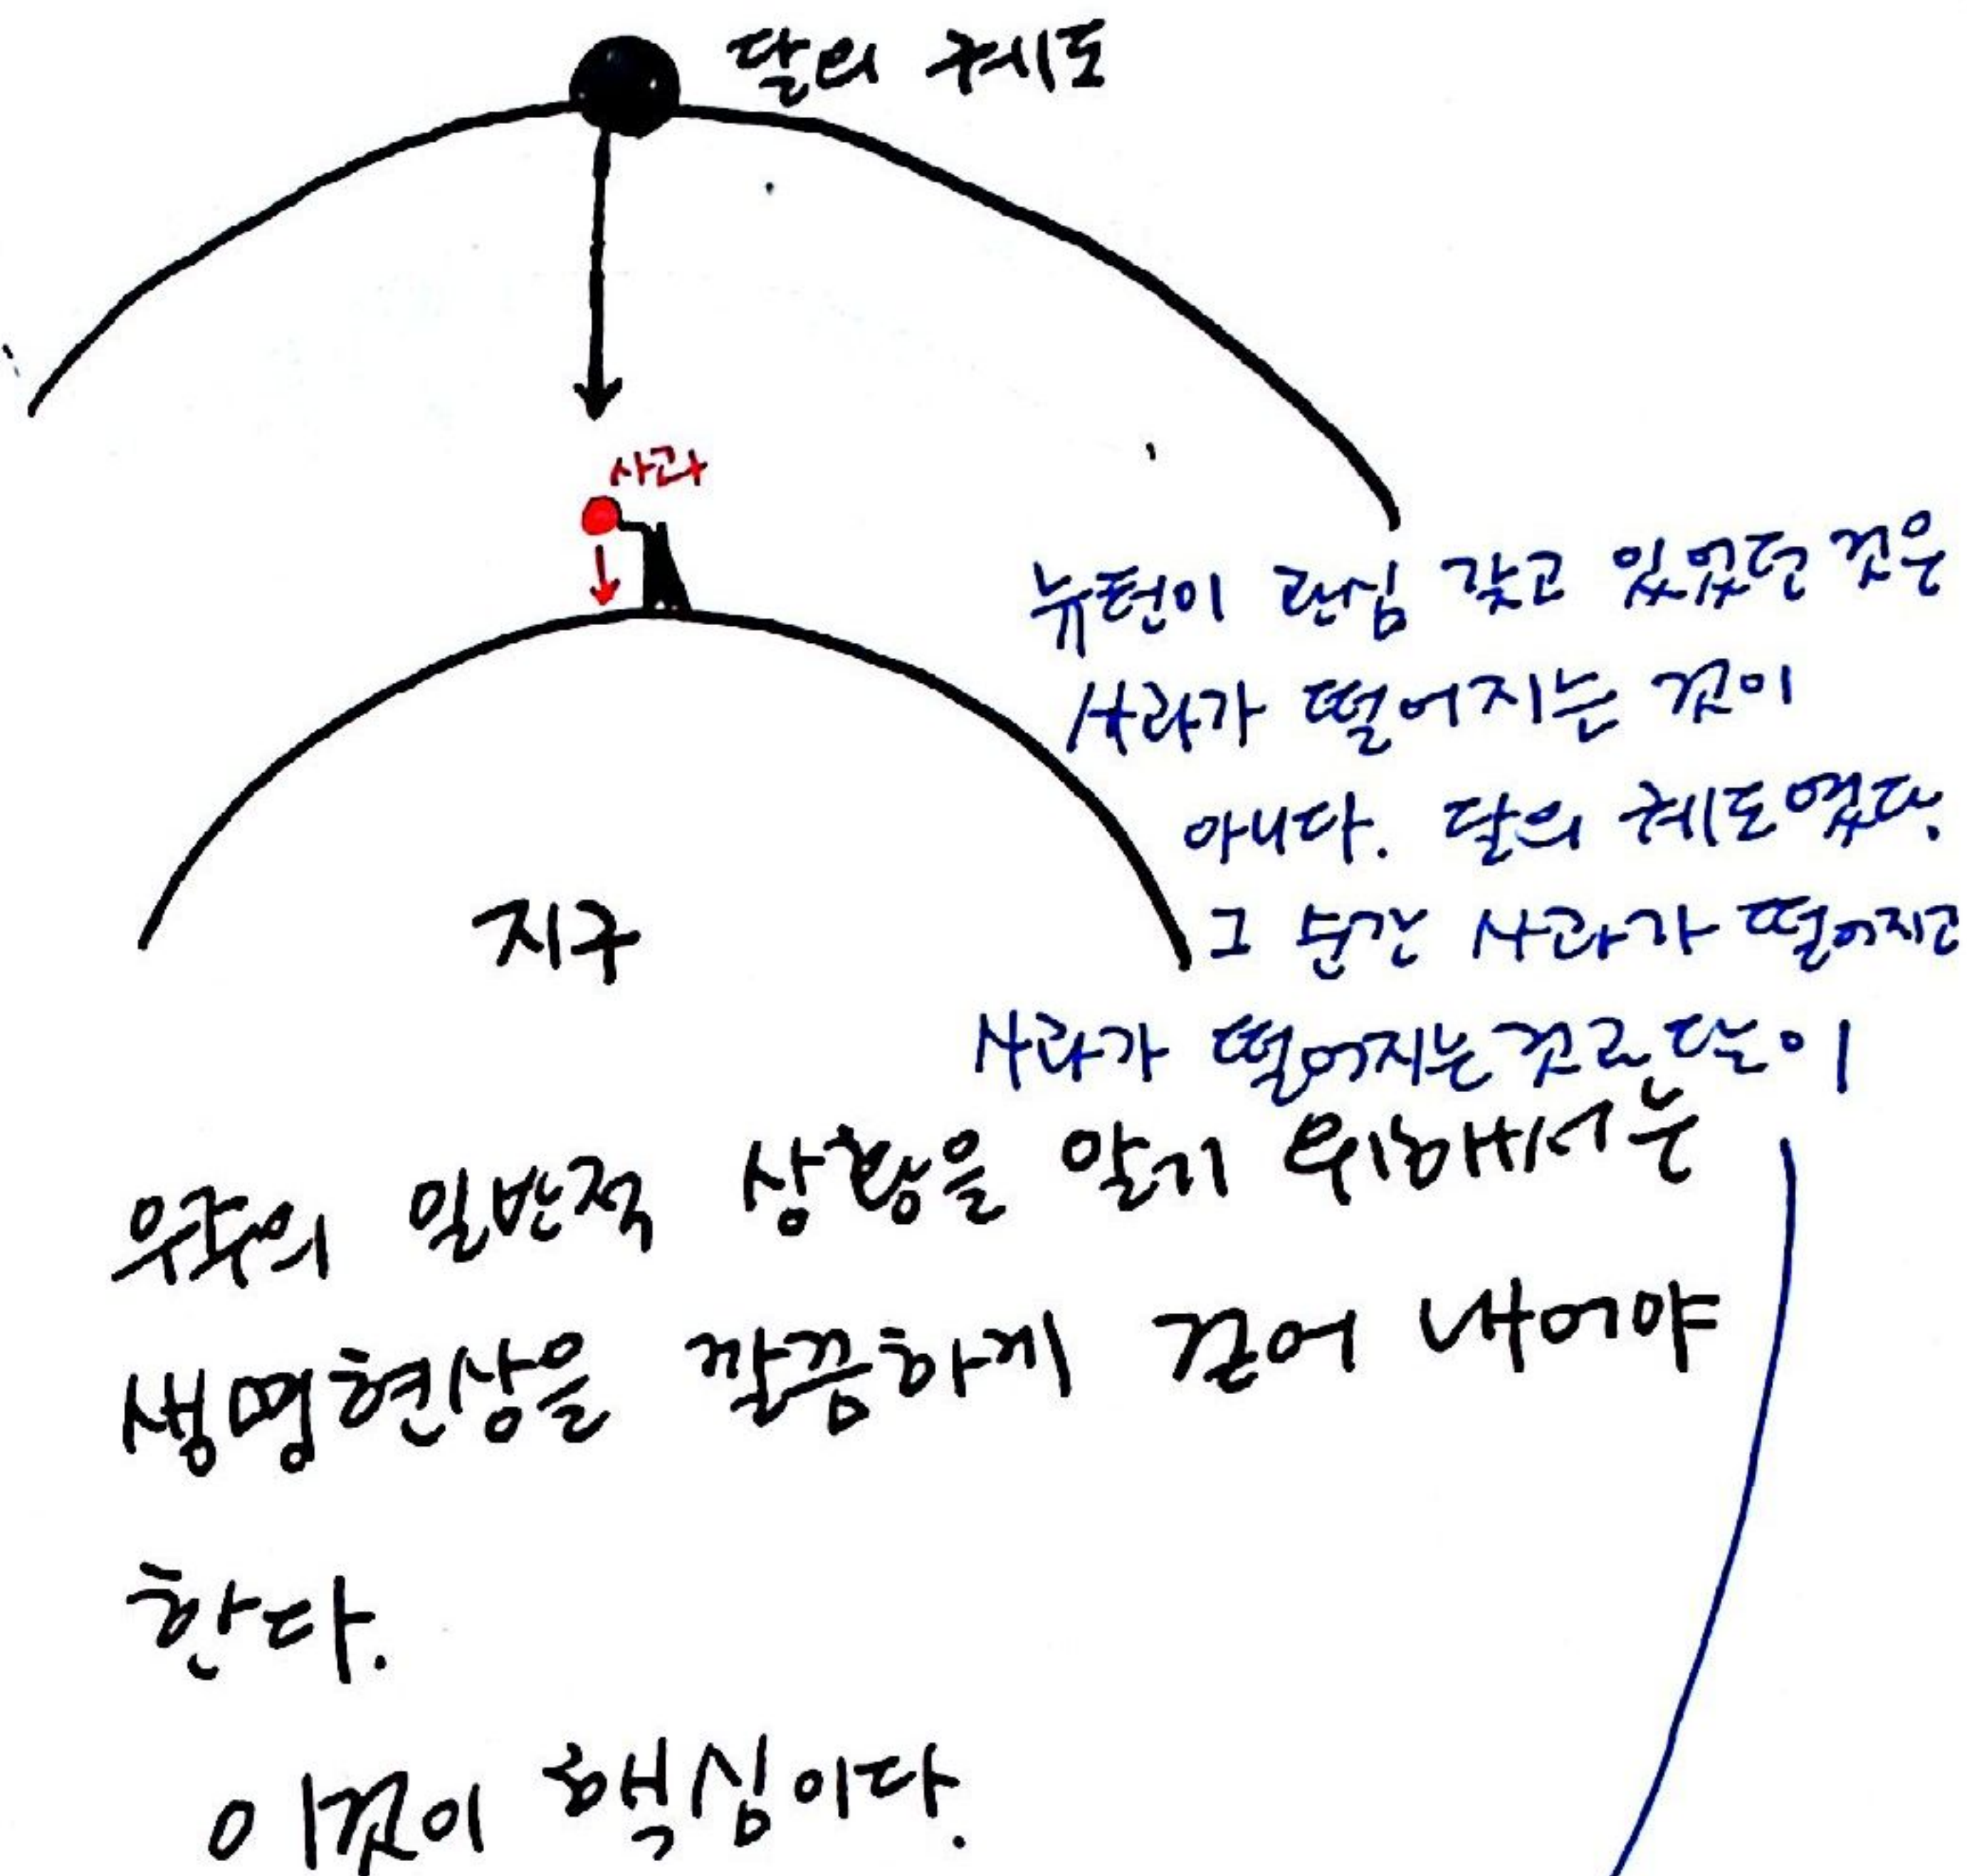 달의 궤도
사과
뉴턴이 관심 갖고 있었던 것은
사과가 떨어지는 것이
아니다. 달의 궤도였다.
그 순간 사과가 떨어지고
지구
사과가 떨어지는 것과 달이
우주의 일반적 상황을 알기 위해서는
생명현상을 깔끔하게 걷어 내어야
한다.
이것이 핵심이다.